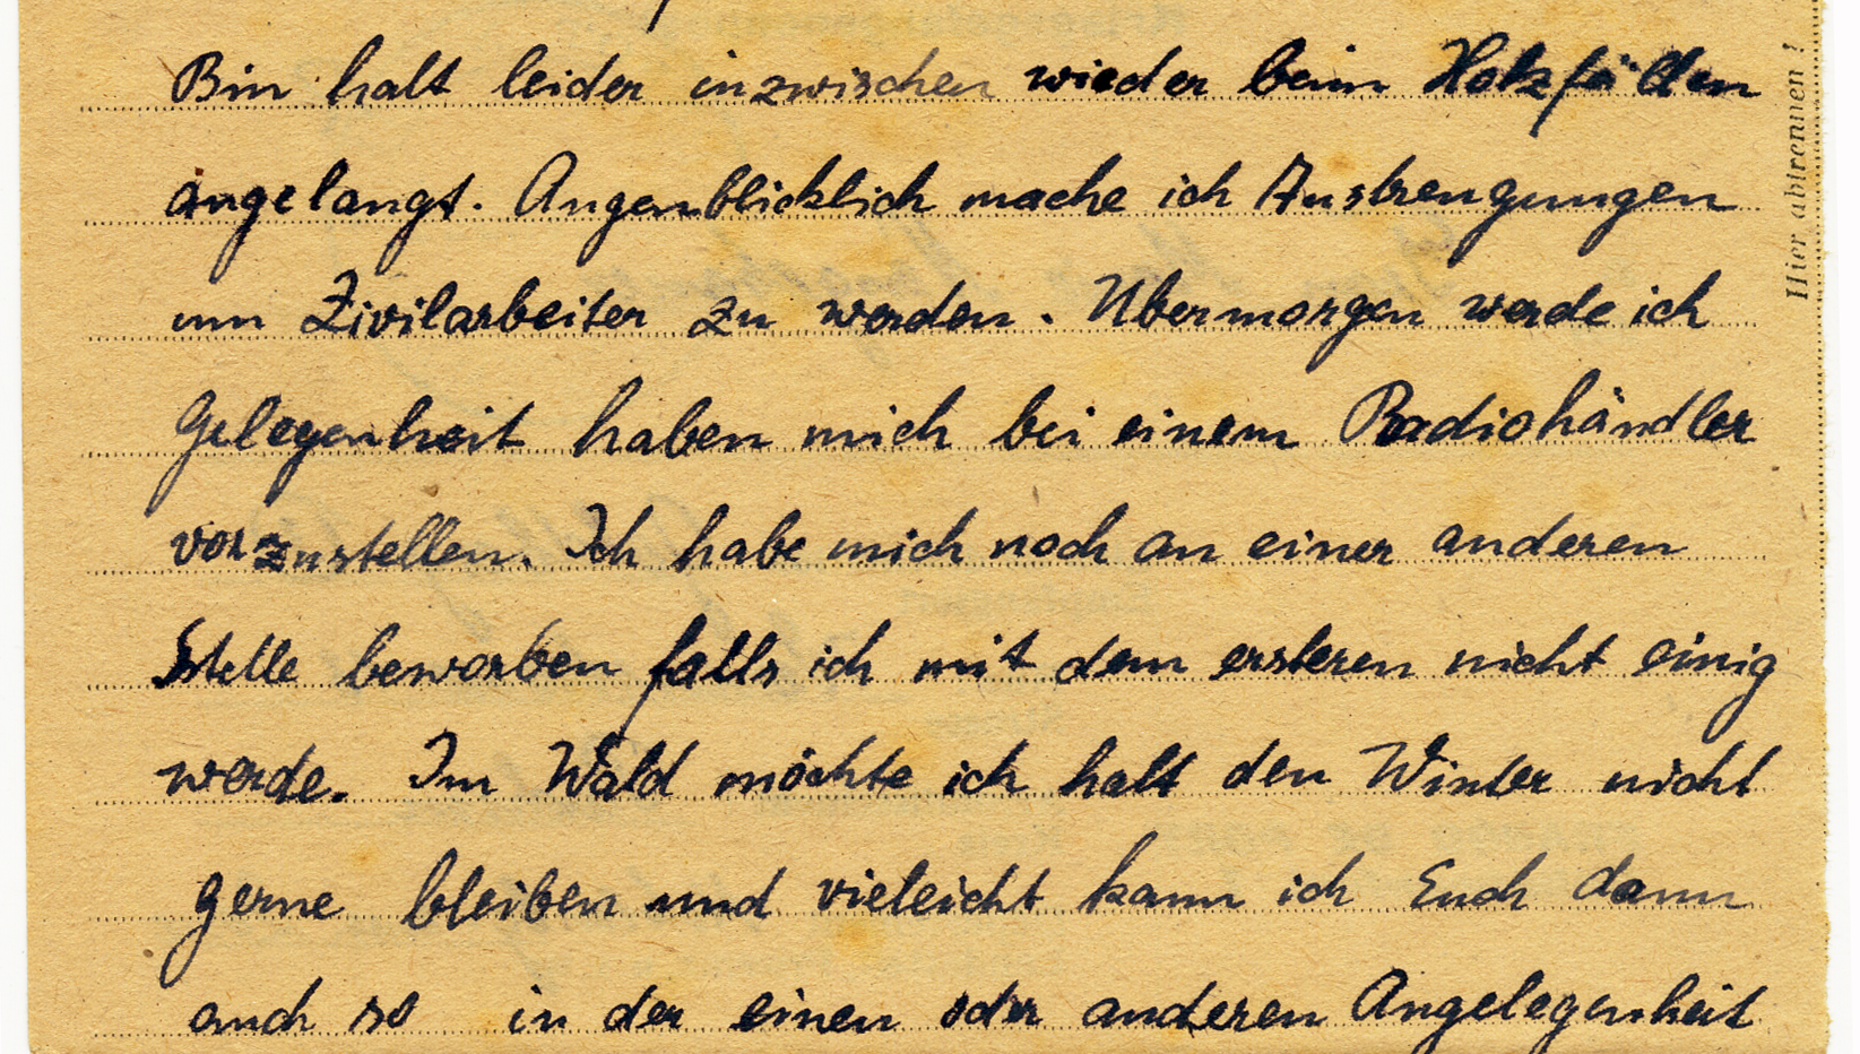 Bin halt leider inzwischen wieder beim Holzfällen
angelangt. Augenblicklich mache ich Anstrengungen
um Zivilarbeiter zu werden. Übermorgen werde ich
Gelegenheit haben mich bei einem Radiohändler
vorzustellen. Ich habe mich noch an einer anderen
Stelle beworben falls ich mit dem ersteren nicht einig
werde. Im Wald möchte ich halt den Winter nicht
gerne bleiben und vieleicht kann ich Euch dann
auch so in der einen oder anderen Angelegenheit
Hier abtrennen!